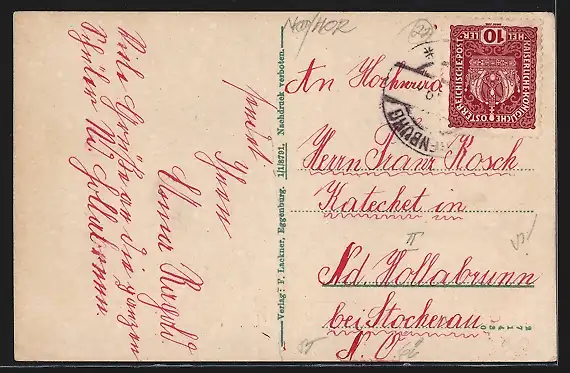 Viele Grüße an die ganzen
Schüler Nd. Hollabrunn.
Ihnen
Anna
Verlag: F. Lackner, Eggenburg. 1/1/8791. Nachdruck verboten.
KAISERLICHE KÖNIGLICHE ÖSTERREICHISCHE POST
10
HELLER
ENBURG
An Hochwürd
Herrn Franz Kosch
Katechet in
Nd. Hollabrunn
bei Stockerau
N. Ö.
II